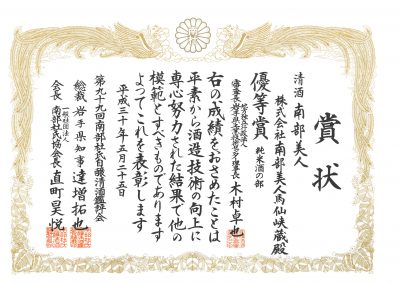 賞状
清酒 南部美人
株式会社南部美人馬仙峡蔵殿
優等賞 純米酒の部
木村卓也
右の成績をおさめたことは
平素から酒造技術の向上に
専心努力された結果で他の
模範とすべきものであります
よってこれを表彰します
平成三十年五月二十五日
第九十九回南部杜氏自醸清酒鑑評会
総裁 岩手県知事 達増拓也
一般社団法人
会長 南部杜氏協会会長 直町昊悦